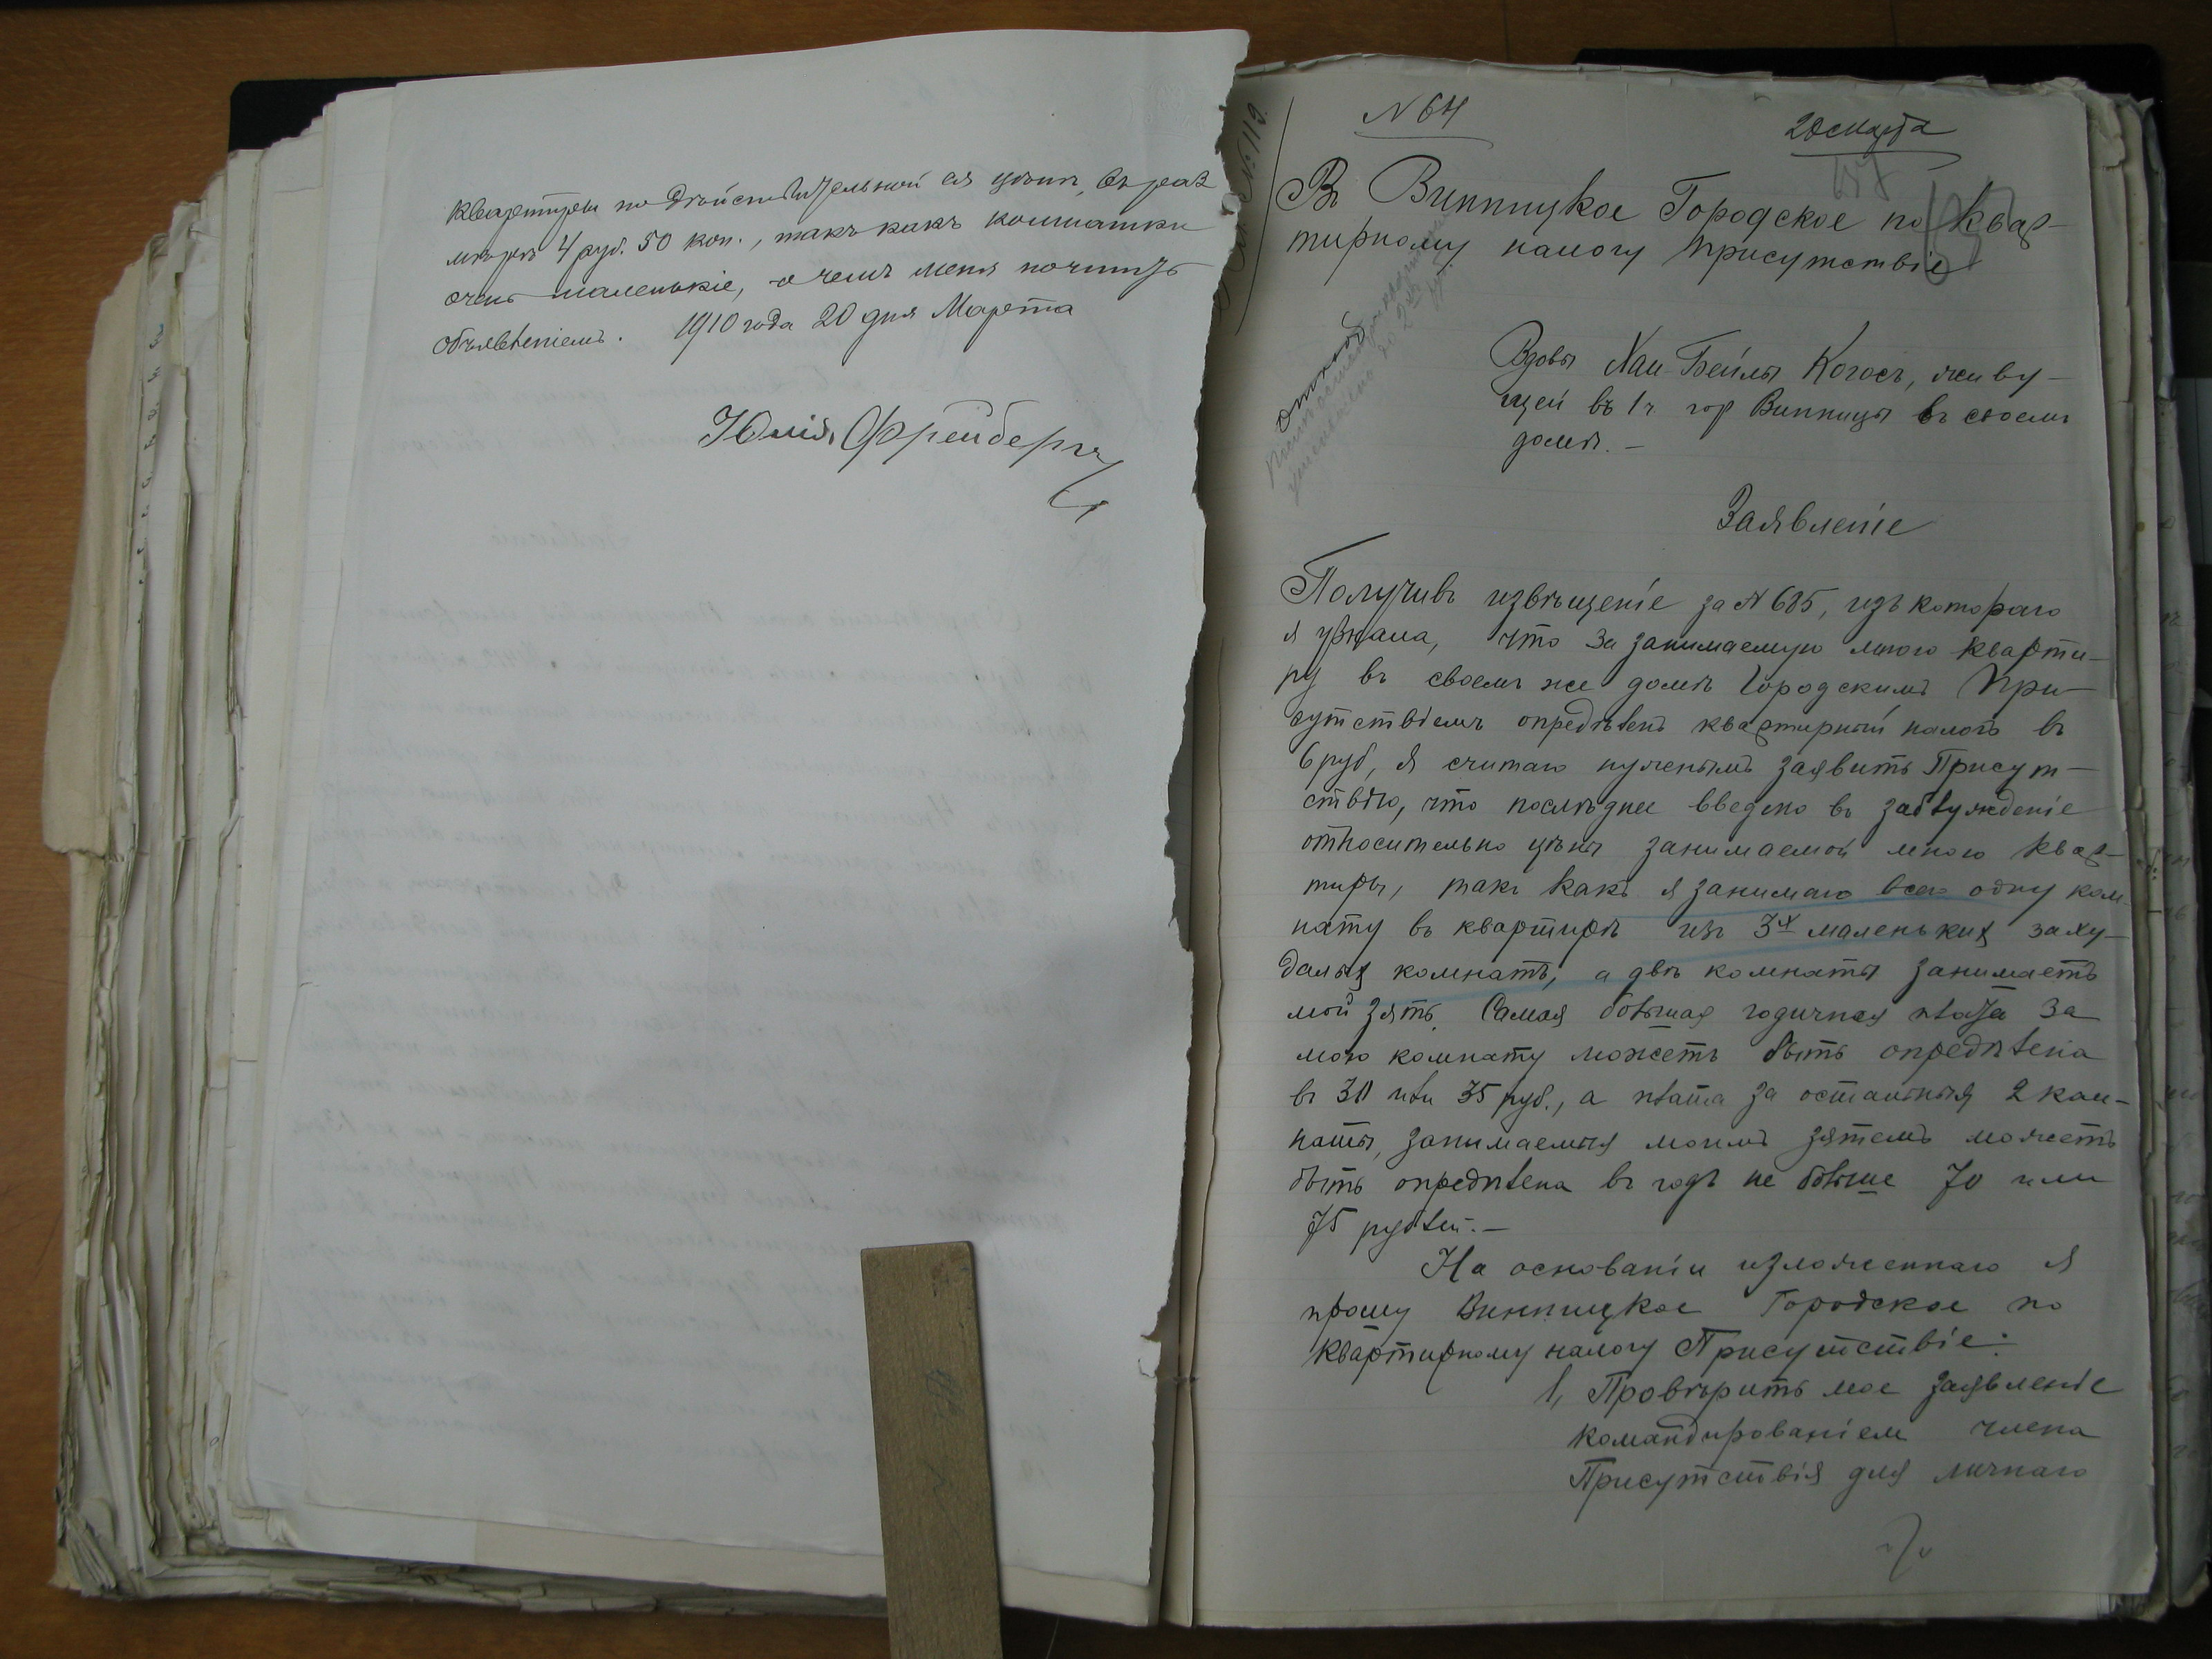 квартиры по дѣйствительной ея цѣнѣ, въ раз
мѣрѣ 4 руб. 50 коп., такъ какъ комнатки
очень маленькіе, о чемъ меня почтить
объявленіемъ. 1910 года 20 дня Марта
Юлія Фрейбергъ
№ 64
20 марта
Въ Винницкое Городское по квар-
тирному налогу Присутствіе
Вдовы Хаи-Бейлы Когосъ, живу-
щей въ 1 ч. гор Винницы въ своемъ
домѣ. –
Заявленіе
Получивъ извѣщеніе за № 685, изъ котораго
я узнала, что за занимаемую мною кварти-
ру въ своемъ же домѣ Городскимъ При-
сутствіемъ опредѣленъ квартирный налогъ въ
6 руб, я считаю нужнымъ заявить Присут-
ствію, что послѣднее введено въ заблужденіе
относительно цѣны занимаемой мною квар-
тиры, такъ какъ я занимаю всего одну ком-
нату въ квартирѣ изъ 3х маленькихъ заху-
далыхъ комнатъ, а двѣ комнаты занимаетъ
мой зять. Самая большая годичная плата за
мою комнату можетъ быть опредѣлена
въ 30 или 35 руб., а плата за остальныя 2 ком-
наты, занимаемыя моимъ зятемъ можетъ
быть опредѣлена въ годъ не больше 70 или
75 рублей. –
На основаніи изложеннаго я
прошу Винницкое Городское по
квартирному налогу Присутствіе:
1, Провѣрить мое заявленіе
командированіем члена
Присутствія для личнаго